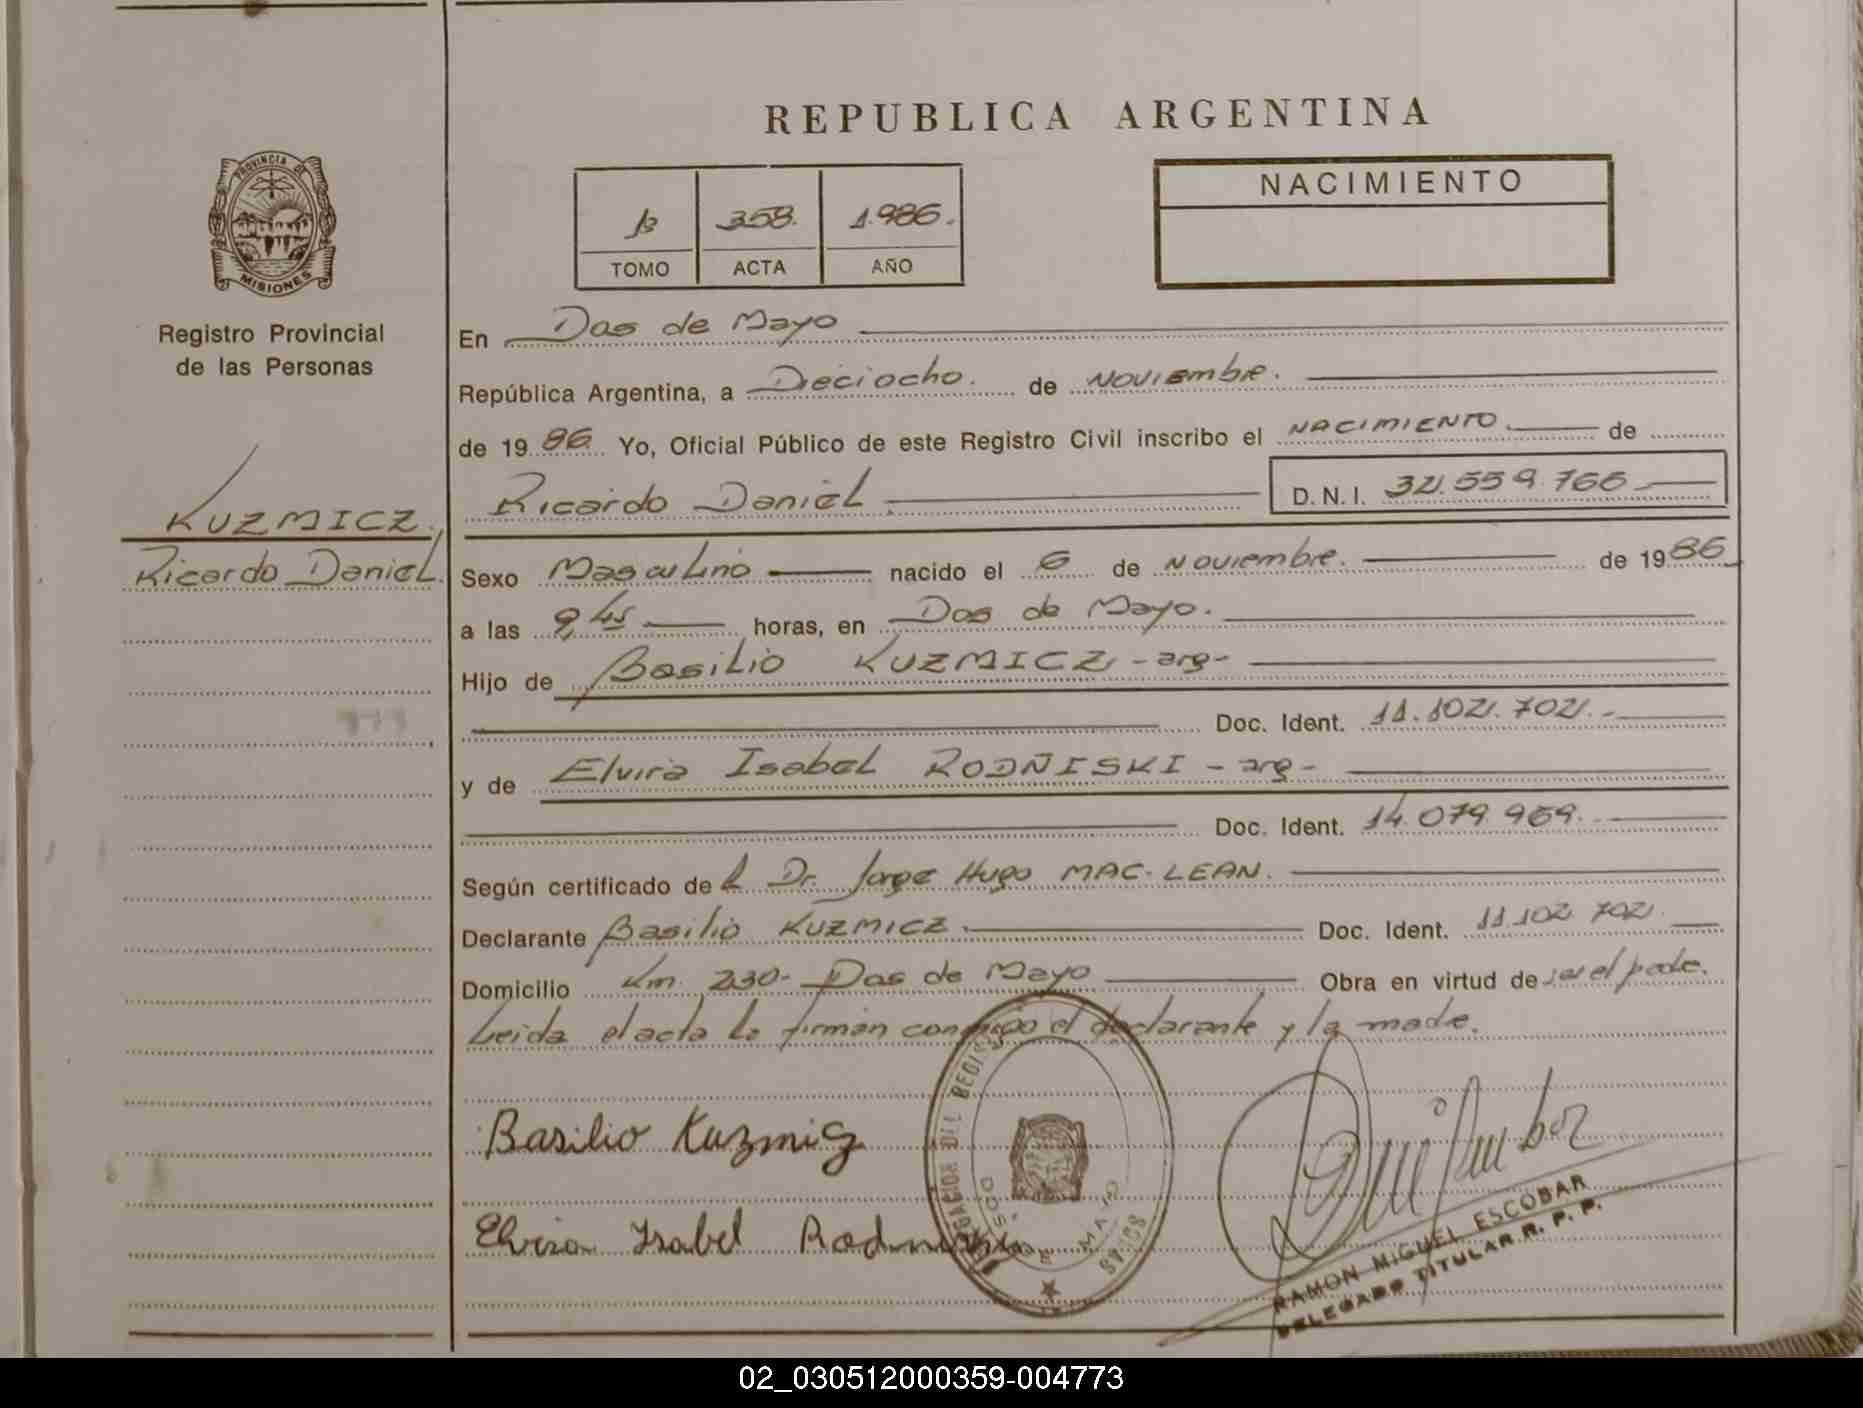 REPUBLICA ARGENTINA
PROVINCIA DE
MISIONES
Registro Provincial
de las Personas
KUZMICZ
Ricardo Daniel
358. 1.986.
TOMO ACTA AÑO
NACIMIENTO
En Dos de Mayo
República Argentina, a Dieciocho. de Noviembre.
de 1986 Yo, Oficial Público de este Registro Civil inscribo el NACIMIENTO de
Ricardo Daniel D.N.I. 32.559.766
Sexo Masculino nacido el 6 de Noviembre. de 1986
a las 9,45 horas, en Dos de Mayo.
Hijo de Basilio KUZMICZ -arg-
Doc. Ident. 11.102.702.-
y de Elvira Isabel RODÑISKI -arg-
Doc. Ident. 14.079.969.
Según certificado del Dr. Jorge Hugo MAC-LEAN.
Declarante Basilio KUZMICZ. Doc. Ident. 11.102.702
Domicilio Km. 230- Dos de Mayo Obra en virtud de ser el padre.
Leida el acta la firman conmigo el declarante y la madre.
Basilio Kuzmicz
Elvira Isabel
RAMON MIGUEL ESCOBAR
DELEGADO TITULAR R. P. P.
02_030512000359-004773